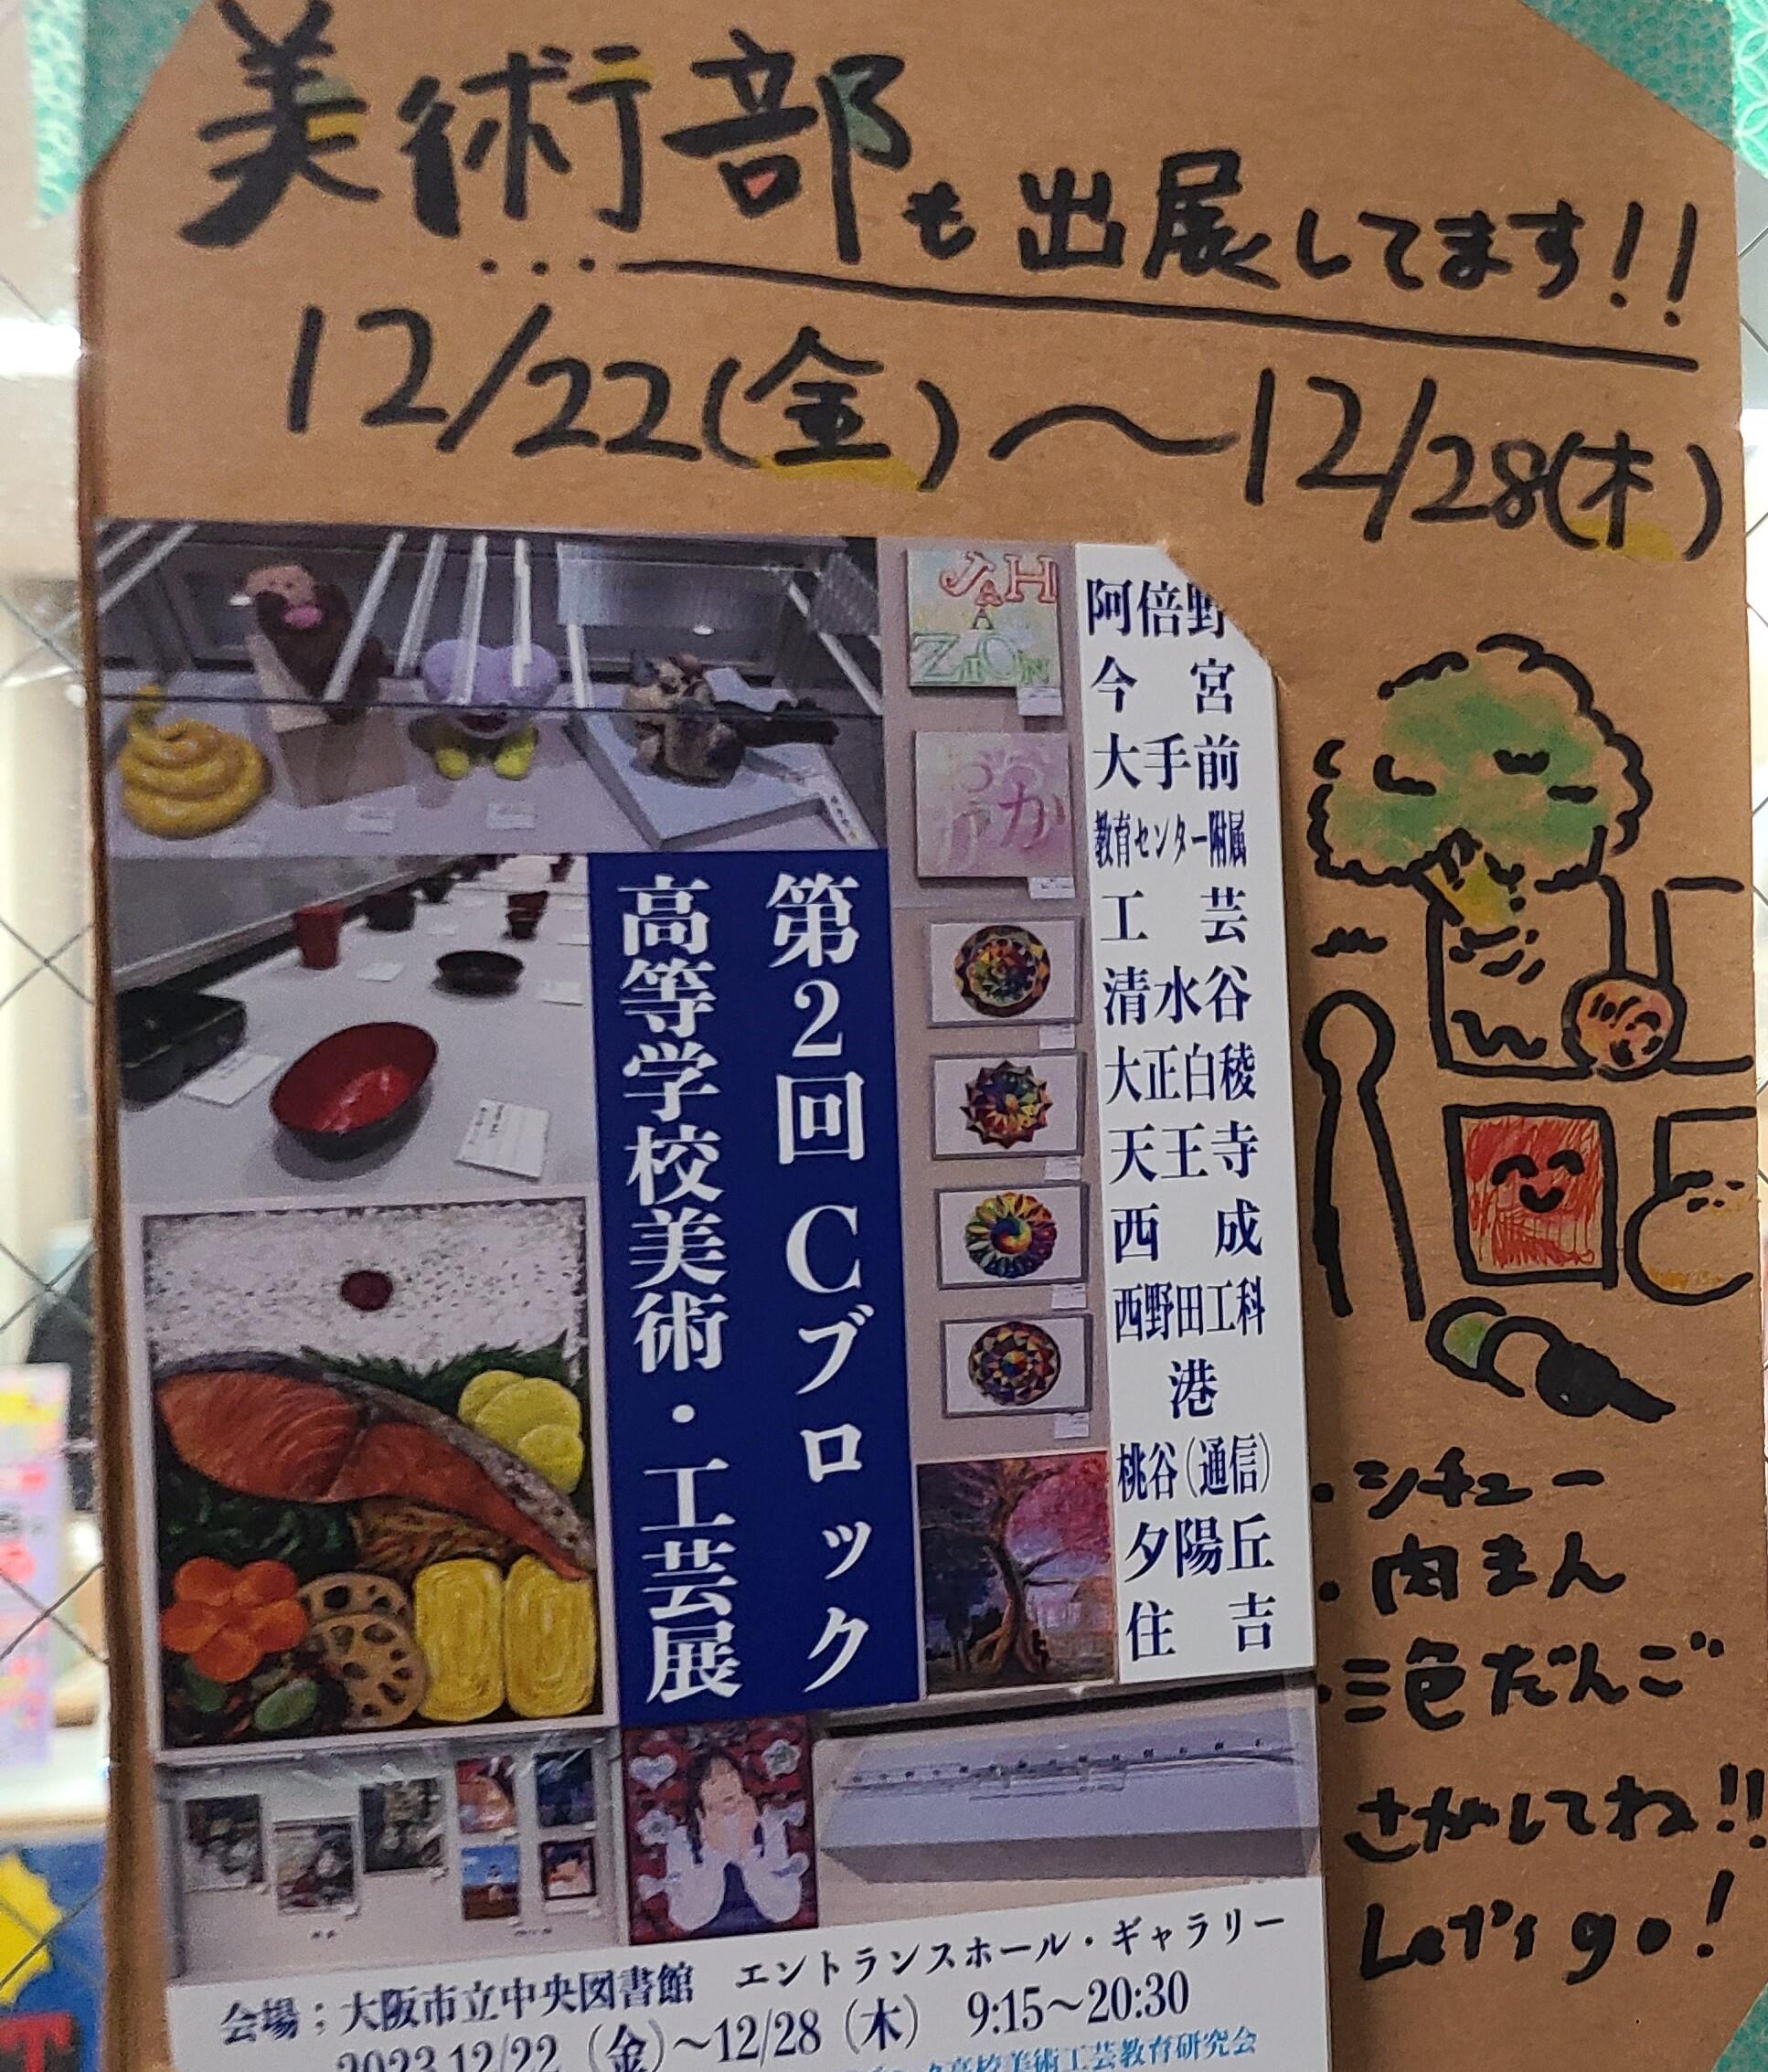 美術部も出展してます!!
12/22(金)〜12/28(木)
JAH
ZION
阿倍野
今宮
大手前
教育センター附属
工芸
清水谷
大正白稜
天王寺
西成
西野田工科
港
桃谷(通信)
夕陽丘
住吉
第2回 Cブロック
高等学校美術・工芸展
・シチュー
・肉まん
・三色だんご
さがしてね!!
Let's go!
会場；大阪市立中央図書館 エントランスホール・ギャラリー
2023.12/22（金）〜12/28（木） 9:15〜20:30
高校美術工芸教育研究会